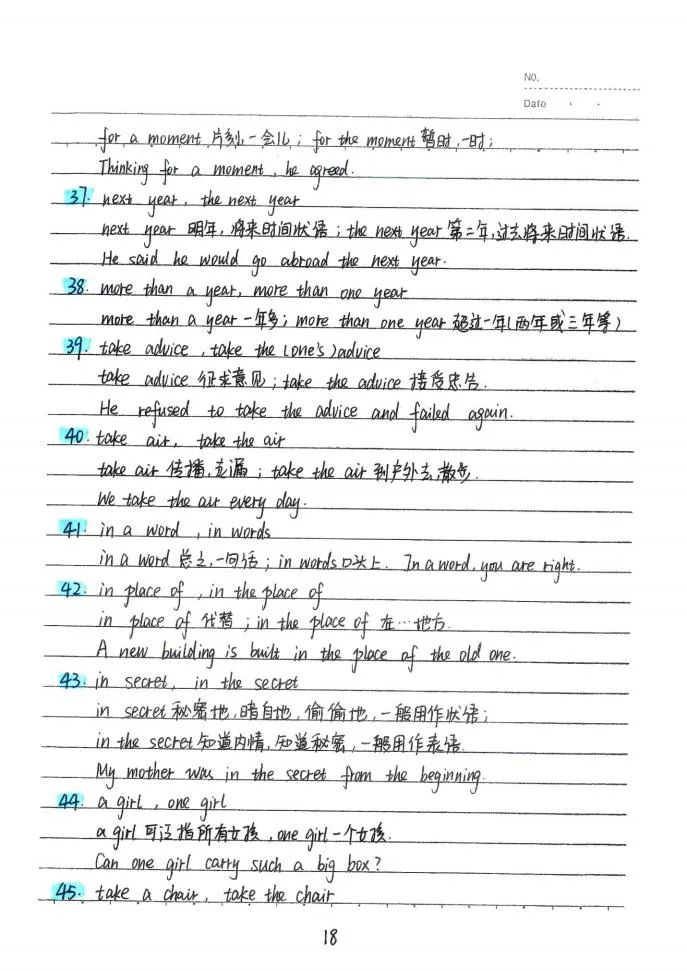 No.
Date
for a moment 片刻,一会儿; for the moment 暂时,一时;
Thinking for a moment, he agreed.
37. next year, the next year
next year 明年,将来时间状语; the next year 第二年,过去将来时间状语.
He said he would go abroad the next year.
38. more than a year, more than one year
more than a year 一年多; more than one year 超过一年(两年或三年等)
39. take advice, take the (one's) advice
take advice 征求意见; take the advice 接受忠告.
He refused to take the advice and failed again.
40. take air, take the air
take air 传播,走漏; take the air 到户外去,散步.
We take the air every day.
41. in a word, in words
in a word 总之,一句话; in words 口头上. In a word, you are right.
42. in place of, in the place of
in place of 代替; in the place of 在…地方.
A new building is built in the place of the old one.
43. in secret, in the secret
in secret 秘密地,暗自地,偷偷地,一般用作状语;
in the secret 知道内情,知道秘密,一般用作表语.
My mother was in the secret from the beginning.
44. a girl, one girl
a girl 可泛指所有女孩, one girl 一个女孩.
Can one girl carry such a big box?
45. take a chair, take the chair
18